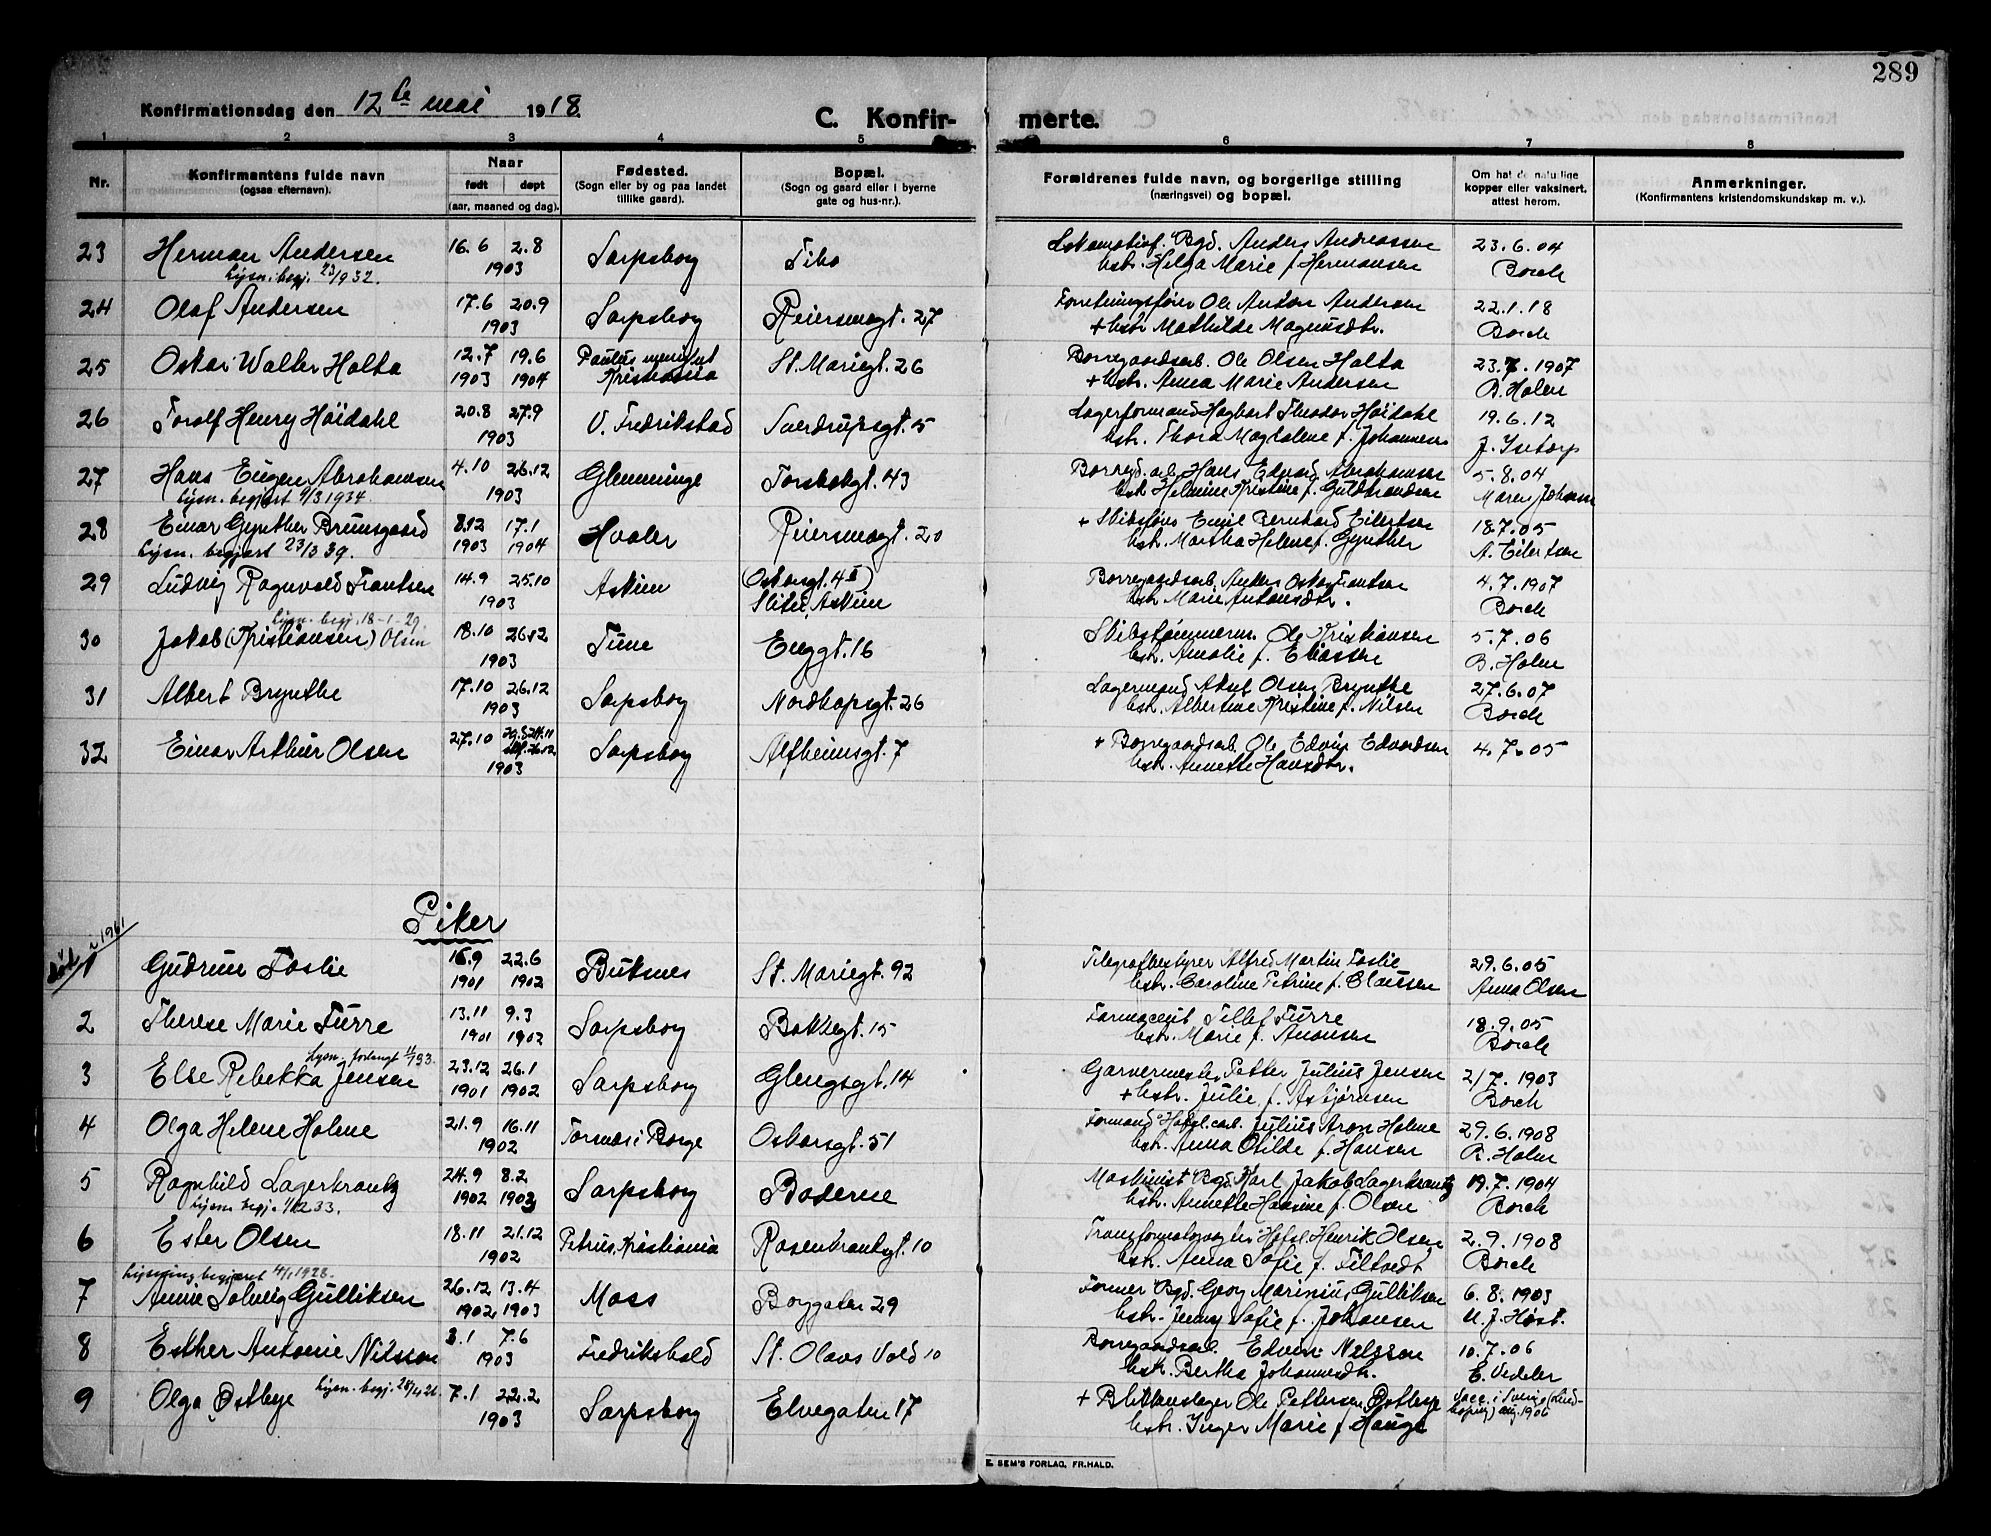 289
Konfirmationsdag den 12te mai 1918.
C. Konfir- merte.
1 2 3 4 5 6 7 8
Nr. Konfirmantens fulde navn (ogsaa efternavn). Naar født døpt (aar, maaned og dag). Fødested. (Sogn eller by og paa landet tillike gaard). Bopæl. (Sogn og gaard eller i byerne gate og hus-nr.). Forældrenes fulde navn, og borgerlige stilling (næringsvei) og bopæl. Om hat de naturlige kopper eller vaksinert, attest herom. Anmerkninger. (Konfirmantens kristendomskundskap m. v.).
23 Herman Andersen 16.6 2.8 Sarpsborg Tibo Lokomotivf. Bgd. Anders Andreassen 23.6.04
lysn. begj. 1932. 1903 hstr. Helga Marie f. Hermansen Borch
24 Olaf Andersen 17.6 20.9 Sarpsborg Reiersensgt. 27 Forretningsfører Ole Anton Andersen 22.1.18
1903 + hstr. Mathilde Magnusdtr. Borch
25 Oskar Walter Holta 12.7 19.6 Paulus menighet St. Mariegt. 26 Borregaardsarb. Ole Olsen Holta 23.7.1907
1903 1904 Kristiania + hstr. Anna Marie Andersen B. Holm
26 Torolf Henry Höidahl 20.8 27.9 V. Fredrikstad Sverdrupsgt. 5 Lagerformand Hagbart Theodor Höidahl 19.6.12
1903 hstr. Thora Magdalene f. Johannesen J. Istorp
27 Hans Eugen Abrahamsen 4.10 26.12 Glemminge Torsbekgt. 43 Borregd. arb. Hans Edvard Abrahamsen 5.8.04
lysn. begjært 9/3 1934. 1903 hstr. Helmine Kristine f. Guldbrandsen Maren Johansen
28 Einar Gynther Brunsgaard 8.12 17.1 Hvaler Reiersensgt. 20 + Skibsfører Emil Bernhard Eilertsen 18.7.05
lysn. begjært 23/3 39. 1903 1904 hstr. Martha Helene f. Gynther A. Eilertsen
29 Ludvig Ragnvald Frantsen 14.9 25.10 Askim (Oskarsgt. 4) Borregaardsarb. Anders Oskar Frantsen 4.7.1907
1903 Slitu, Askim hstr. Marie Antonsdtr. Borch
lysn. begj. 18-1-29.
30 Jakob (Kristiansen) Olsen 18.10 26.12 Tune Enggt. 16 Skibstømmerm. Ole Kristiansen 5.7.06
1903 hstr. Amalie f. Eliassen B. Holm
31 Albert Brynthe 17.10 26.12 Sarpsborg Nordkapsgt. 26 Lagermand Aksel Olsen Brynthe 27.6.07
1903 hstr. Albertine Kristine f. Nilsen Borch
32 Einar Arthur Olsen 27.10 Sarpsborg Alfheimsgt. 7 + Borregaardsarb. Ole Edvin Edvardsen 4.7.05
1903 hstr. Annette Hansdtr.
Piker
død i 1961
1 Gudrun Foslie 15.9 22.6 Buksnes St. Mariegt. 92 Telegrafbestyrer Alfred Martin Foslie 29.6.05
1901 1902 hstr. Caroline Petrine f. Claussen Anna Olsen
2 Therese Marie Furre 13.11 9.3 Sarpsborg Bakkegt. 15 Farmaceut Tellef Furre 18.9.05
1901 1902 hstr. Marie f. Aronsen Borch
lysn. forlangt 11/7 33.
3 Else Rebekka Jensen 23.12 26.1 Sarpsborg Glengsgt. 14 Garvermester Petter Julius Jensen 2/7.1903
1901 1902 + hstr. Julie f. Asbjørnsen Borch
4 Olga Helene Holme 21.9 16.11 Tornæs i Borge Oskarsgt. 51 Formand Hafsl. carb. Julius Aron Holme 29.6.1908
1902 hstr. Anna Otilde f. Hansen B. Holm
5 Ragnhild Lagerkrantz 24.9 8.2 Sarpsborg Boderne Maskinist Bgd. Karl Jakob Lagerkrantz 19.7.1904
lysn. begj. 1/12 33. 1902 1903 hstr. Annette Hansine f. Olsen Borch
6 Ester Olsen 18.11 21.12 Petrus, Kristiania Rosenkrantzgt. 10 Transformatorvagter Hafsl. Henrik Olsen 2.9.1908
1902 hstr. Anna Sofie f. Filtvedt Borch
Lysning begjæret 4/1 1928.
7 Anne Solveig Gulliksen 26.12 13.4 Moss Borggaten 29 Former Bgd. Georg Marinius Gulliksen 6.8.1903
1902 1903 hstr. Jenny Sofie f. Johansen M. J. Høst.
8 Esther Antonie Nilsson 3.1 7.6 Fredrikshald St. Olavs Vold 10 Borregaardsarb. Edvin Nilsson 10.7.06
1903 hstr. Bertha Johannesdtr. E. Vedeler
9 Olga Østbye lysn. begj. 28/4 26 7.1 22.2 Sarpsborg Elvegaten 17 + Blikkenslager Ole Pettersen Østbye Vacc. i Sverige (Lind-
1903 hstr. Inger Marie f. Hauge köping) aug. 1906
E. SEM'S FORLAG, FR.HALD.